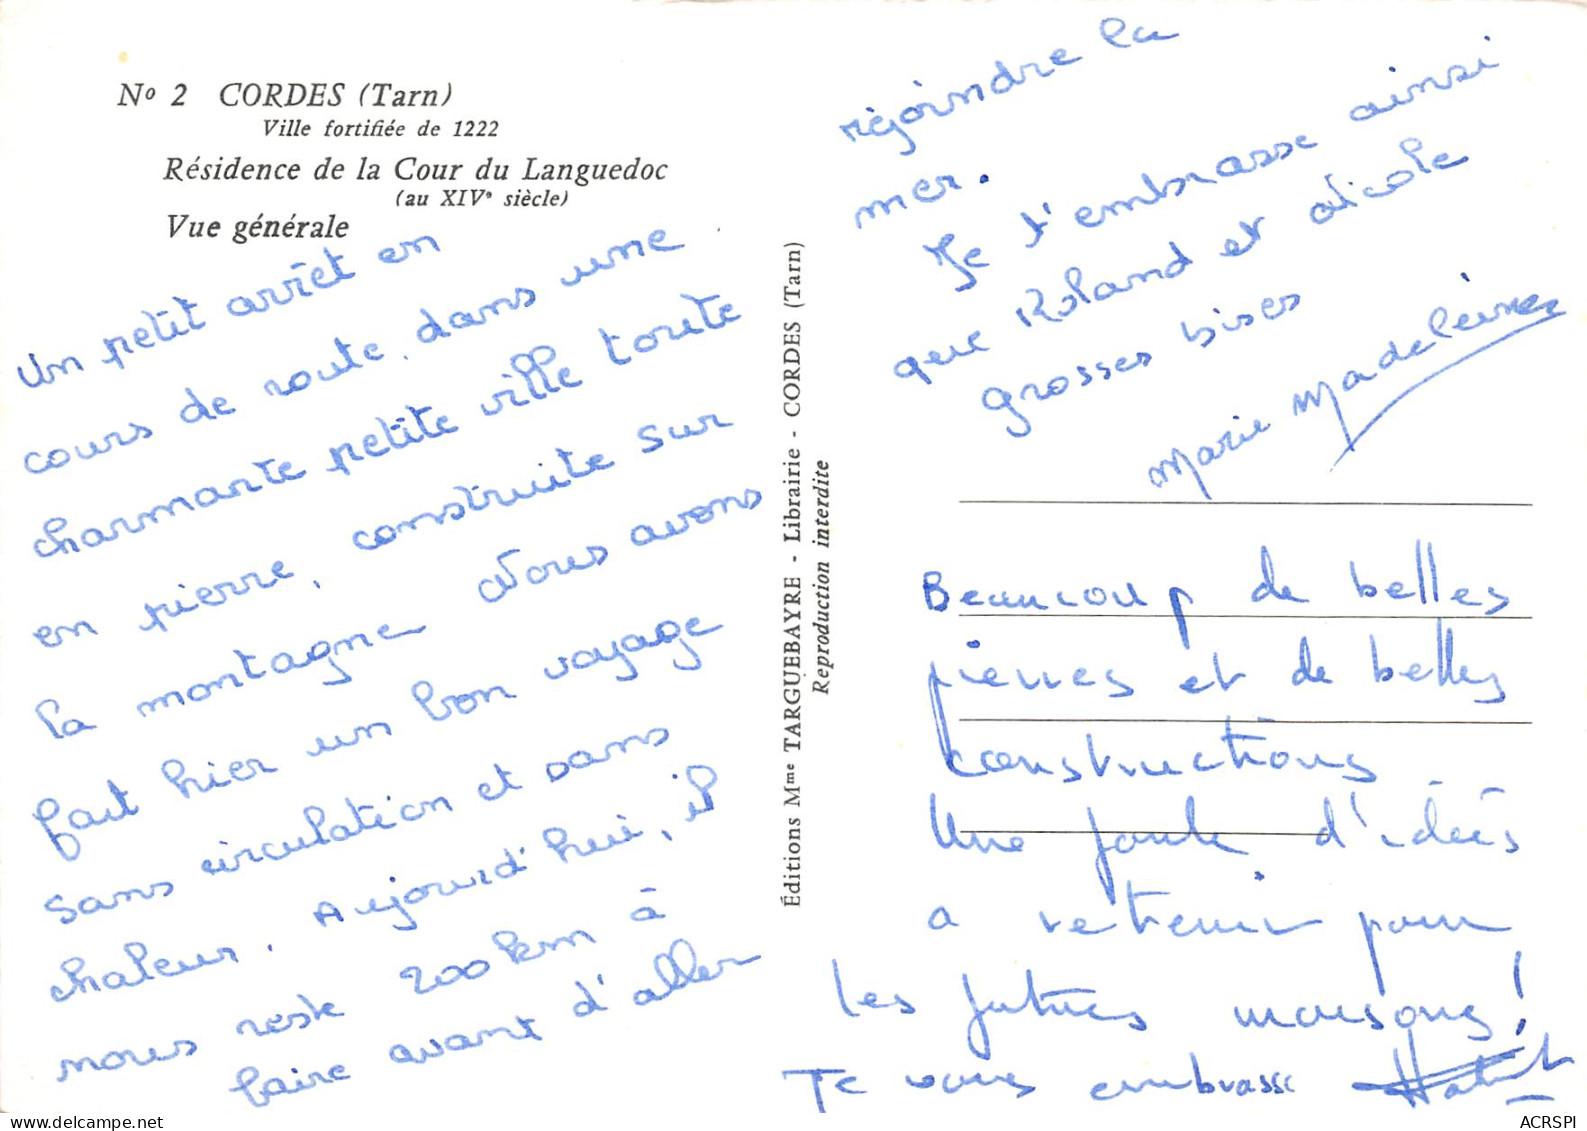 No 2 CORDES (Tarn)
Ville fortifiée de 1222
Résidence de la Cour du Languedoc
(au XIVe siècle)
Vue générale
Un petit arrêt en
cours de route, dans une
charmante petite ville toute
en pierre, construite sur
la montagne Nous avons
fait hier un bon voyage
sans circulation et sans
chaleur. Aujourd'hui, il
nous reste 200 km à
faire avant d'aller
Éditions Mme TARGUEBAYRE - Librairie - CORDES (Tarn)
Reproduction interdite
rejoindre la
mer.
Je t'embrasse ainsi
que Roland et Nicole
grosses bises
Marie Madeleine
Beaucoup de belles
pierres et de belles
constructions
Une foule d'idées
a retenir pour
les futures maisons!
Je vous embrasse
ACRSPI